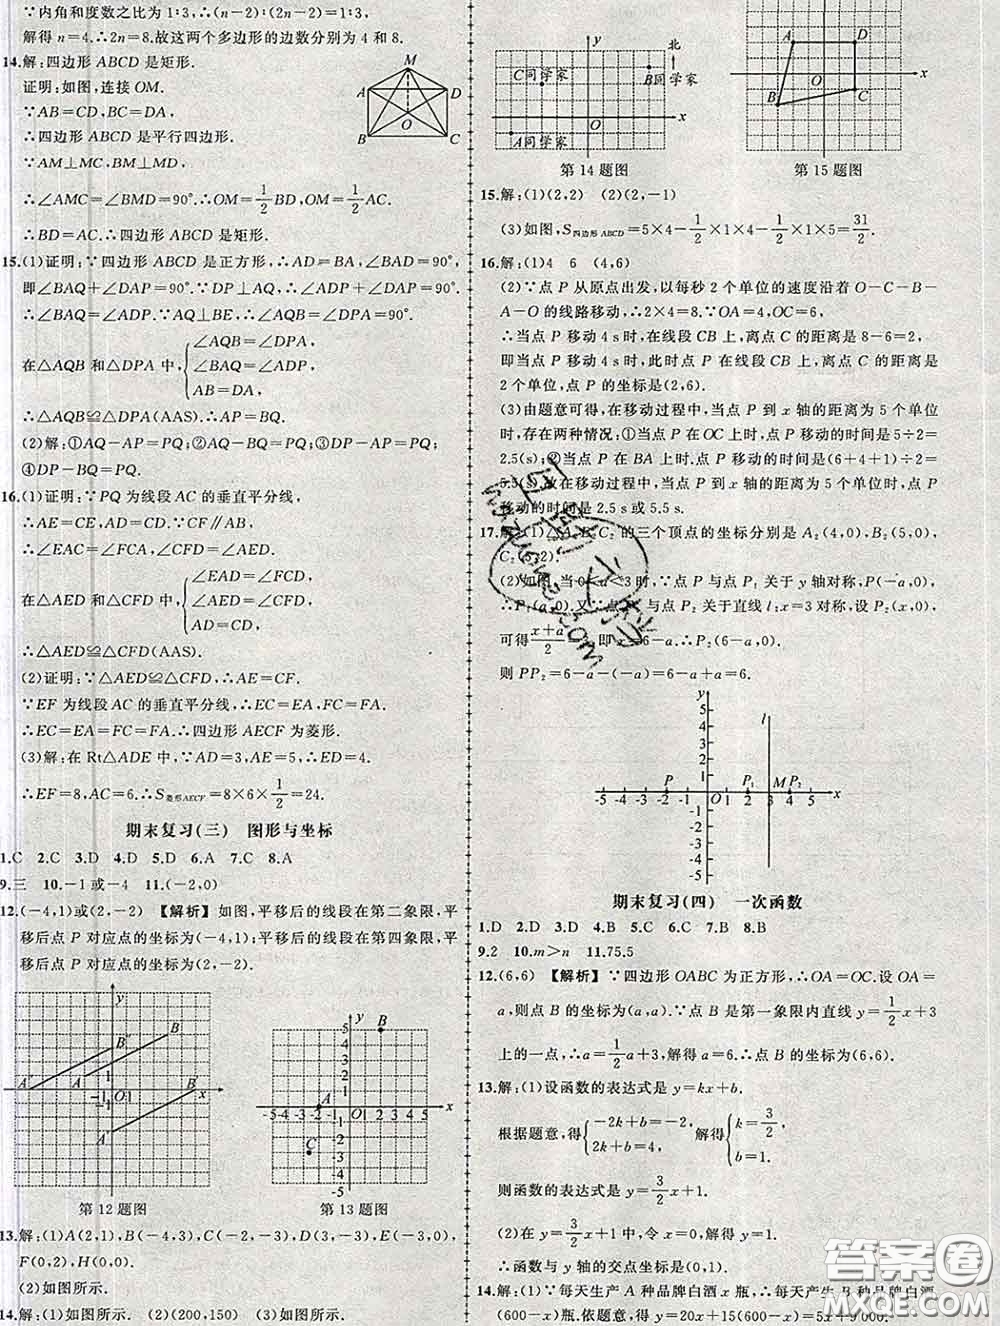 ∵内角和度数之比为1∶3,∴(n-2)∶(2n-2)=1∶3,
解得n=4.∴2n=8.故这两个多边形的边数分别为4和8.
14.解:四边形ABCD是矩形.
证明:如图,连接OM.
∵AB=CD,BC=DA,
∴四边形ABCD是平行四边形.
∵AM⊥MC,BM⊥MD,
∴∠AMC=∠BMD=90°.∴OM=1/2BD,OM=1/2AC.
∴BD=AC.∴四边形ABCD是矩形.
M
A D
O
B C
15.(1)证明:∵四边形ABCD是正方形,∴AD=BA,∠BAD=90°,
即∠BAQ+∠DAP=90°.∵DP⊥AQ,∴∠ADP+∠DAP=90°.
∴∠BAQ=∠ADP.∵AQ⊥BE,∴∠AQB=∠DPA=90°.
在△AQB和△DPA中,{∠AQB=∠DPA,
∠BAQ=∠ADP,
AB=DA,
∴△AQB≌△DPA(AAS).∴AP=BQ.
(2)解:①AQ-AP=PQ;②AQ-BQ=PQ;③DP-AP=PQ;
④DP-BQ=PQ.
16.(1)证明:∵PQ为线段AC的垂直平分线,
∴AE=CE,AD=CD.∵CF∥AB,
∴∠EAC=∠FCA,∠CFD=∠AED.
在△AED和△CFD中,{∠EAD=∠FCD,
∠AED=∠CFD,
AD=CD,
∴△AED≌△CFD(AAS).
(2)证明:∵△AED≌△CFD,∴AE=CF.
∵EF为线段AC的垂直平分线,∴EC=EA,FC=FA.
∴EC=EA=FC=FA.∴四边形AECF为菱形.
(3)解:在Rt△ADE中,∵AD=3,AE=5,∴ED=4.
∴EF=8,AC=6.∴S菱形AECF=8×6×1/2=24.
期末复习(三) 图形与坐标
1.C 2.C 3.D 4.D 5.D 6.A 7.C 8.A
9.三 10.-1或-4 11.(-2,0)
12.(-4,1)或(2,-2) 【解析】如图,平移后的线段在第二象限,平
移后点P对应点的坐标为(-4,1);平移后的线段在第四象限,平
移后点P对应点的坐标为(2,-2).
y
B″ B
A″ A
1
O 1 B′ x
A′
第12题图
y
5 B
4
3
2
1
A
-5-4-3-2-1 O 1 2 3 4 5 x
-1
-2
C -3
-4
-5
第13题图
13.解:(1)A(2,1),B(-4,3),C(-2,-3),D(3,-3),E(-3,0),
F(0,2),H(0,0).
(2)如图所示.
14.解:(1)如图所示. (2)(200,150) (3)如图所示.
y 北
C同学家 B同学家
O x
A同学家
第14题图
y
A D
O x
B C
第15题图
15.解:(1)(2,2) (2)(2,-1)
(3)如图,S四边形ABCD=5×4-1/2×1×4-1/2×5×1=31/2.
16.解:(1)4 6 (4,6)
(2)∵点P从原点出发,以每秒2个单位的速度沿着O-C-B-
A-O的线路移动,∴2×4=8.∵OA=4,OC=6,
∴当点P移动4 s时,在线段CB上,离点C的距离是8-6=2,
即当点P移动4 s时,此时点P在线段CB上,离点C的距离是
2个单位,点P的坐标是(2,6).
(3)由题意可得,在移动过程中,当点P到x轴的距离为5个单位
时,存在两种情况:①当点P在OC上时,点P移动的时间是5÷2=
2.5(s);②当点P在BA上时,点P移动的时间是(6+4+1)÷2=
5.5(s).故在移动过程中,当点P到x轴的距离为5个单位时,点P
移动的时间是2.5 s或5.5 s.
17.解:(1)△A2B2C2的三个顶点的坐标分别是A2(4,0),B2(5,0),
C2(5,2).
(2)如图,当0<a<3时,∵点P与点P1关于y轴对称,P(-a,0),
∴P1(a,0).又∵点P1与点P2关于直线l:x=3对称,设P2(x,0),
可得(x+a)/2=3,即x=6-a.∴P2(6-a,0).
则PP2=6-a-(-a)=6-a+a=6.
y
5
4
3
2
1
l
P P1 M P2
-5 -4 -3 -2 -1 O 1 2 3 4 5 x
-1
-2
-3
-4
-5
期末复习(四) 一次函数
1.D 2.D 3.D 4.B 5.C 6.D 7.B 8.B
9.2 10.m>n 11.75.5
12.(6,6) 【解析】∵四边形OABC为正方形,∴OA=OC.设OA=
a,则点B的坐标为(a,a).∵点B是第一象限内直线y=1/2x+3
上的一点,∴a=1/2a+3,解得a=6.∴点B的坐标为(6,6).
13.解:(1)设函数的表达式是y=kx+b.
根据题意,得{-2k+b=-2,
2k+b=4, 解得{k=3/2,
b=1.
则函数的表达式是y=3/2x+1.
(2)在y=3/2x+1中,令x=0,解得y=1.
∴函数与y轴的交点坐标是(0,1).
14.解:(1)∵每天生产A种品牌白酒x瓶,∴每天生产B种品牌白酒
(600-x)瓶.依题意,得y=20x+15(600-x)=5x+9000.
答案圈
MXQE.COM